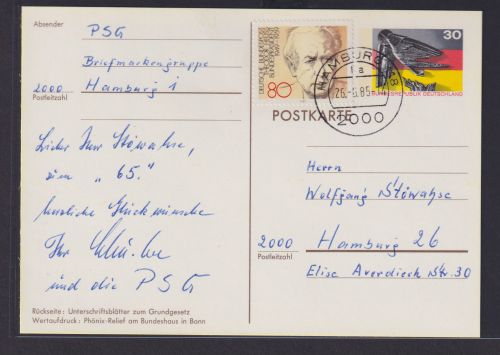 Absender
PSG
Briefmarkengruppe
2000 Hamburg 1
Postleitzahl
Lieber Herr Stöwahse,
zum „65."
herzliche Glückwünsche
Ihr
und die PSG
Rückseite: Unterschriftsblätter zum Grundgesetz
Wertaufdruck: Phönix-Relief am Bundeshaus in Bonn
DEUTSCHE BUNDESPOST
BUNDESPRÄSIDENT
1949-1959
80
30
BUNDESREPUBLIK DEUTSCHLAND
HAMBURG
1a
2000
POSTKARTE
Herrn
Wolfgang Stöwahse
2000 Hamburg 26
Postleitzahl
Elise Averdieck Str. 30